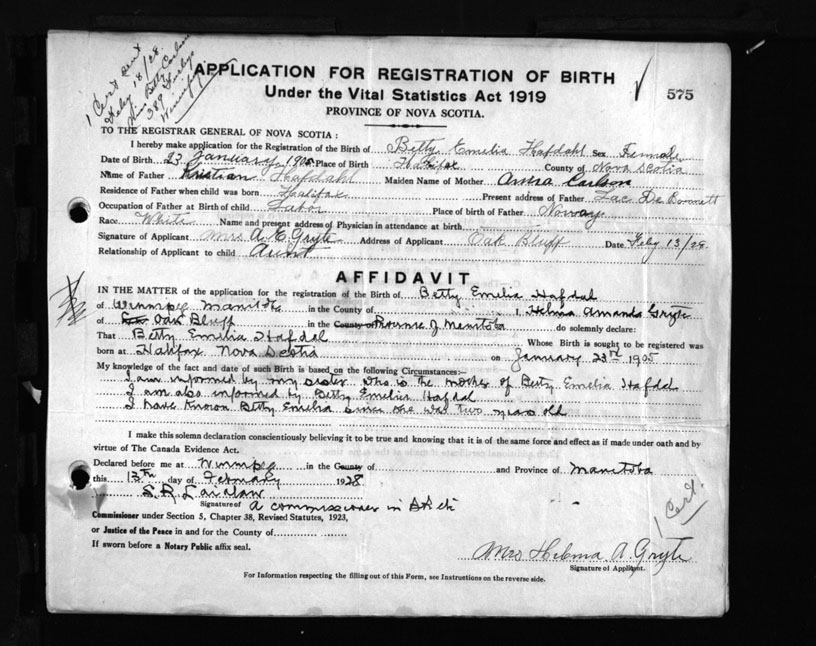 1 Cert sent
Feby 18/28
Miss Betty
389 Furby
Winnipeg
APPLICATION FOR REGISTRATION OF BIRTH
Under the Vital Statistics Act 1919
575
PROVINCE OF NOVA SCOTIA.
TO THE REGISTRAR GENERAL OF NOVA SCOTIA :
I hereby make application for the Registration of the Birth of Betty Emelia Hafdahl Sex Female
Date of Birth 23 January 1905 Place of Birth Halifax County of Nova Scotia
Name of Father Kristian Hafdahl Maiden Name of Mother Anna Carlson
Residence of Father when child was born Halifax Present address of Father Lac De Bonnett
Occupation of Father at Birth of child Labor Place of birth of Father Norway
Race White Name and present address of Physician in attendance at birth
Signature of Applicant Mrs A. Gryte Address of Applicant Oak Bluff Date Feby 13/28
Relationship of Applicant to child Aunt
AFFIDAVIT
IN THE MATTER of the application for the registration of the Birth of Betty Emelia Hafdal
of Winnipeg Manitoba in the County of I, Helma Amanda Gryte
of Oak Bluff in the County of Province of Manitoba do solemnly declare:
That Betty Emelia Hafdal Whose Birth is sought to be registered was
born at Halifax Nova Scotia on January 23rd 1905
My knowledge of the fact and date of such Birth is based on the following Circumstances:—
I am informed by my sister who is the mother of Betty Emelia Hafdal
I am also informed by Betty Emelia Hafdal
I have known Betty Emelia since she was two years old
I make this solemn declaration conscientiously believing it to be true and knowing that it is of the same force and effect as if made under oath and by
virtue of The Canada Evidence Act.
Declared before me at Winnipeg in the County of and Province of Manitoba
this 13th day of February 1928
S. R. Laidlaw
Signature of A commissioner in
Commissioner under Section 5, Chapter 38, Revised Statutes, 1923,
or Justice of the Peace in and for the County of
If sworn before a Notary Public affix seal.
1 Cert.
Mrs Helma A. Gryte
Signature of Applicant.
For Information respecting the filling out of this Form, see Instructions on the reverse side.